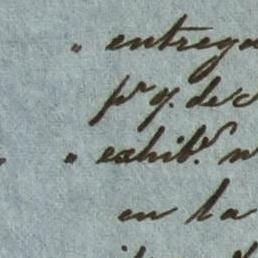 " entrega
pr. q. de
" exhibo. n
en la